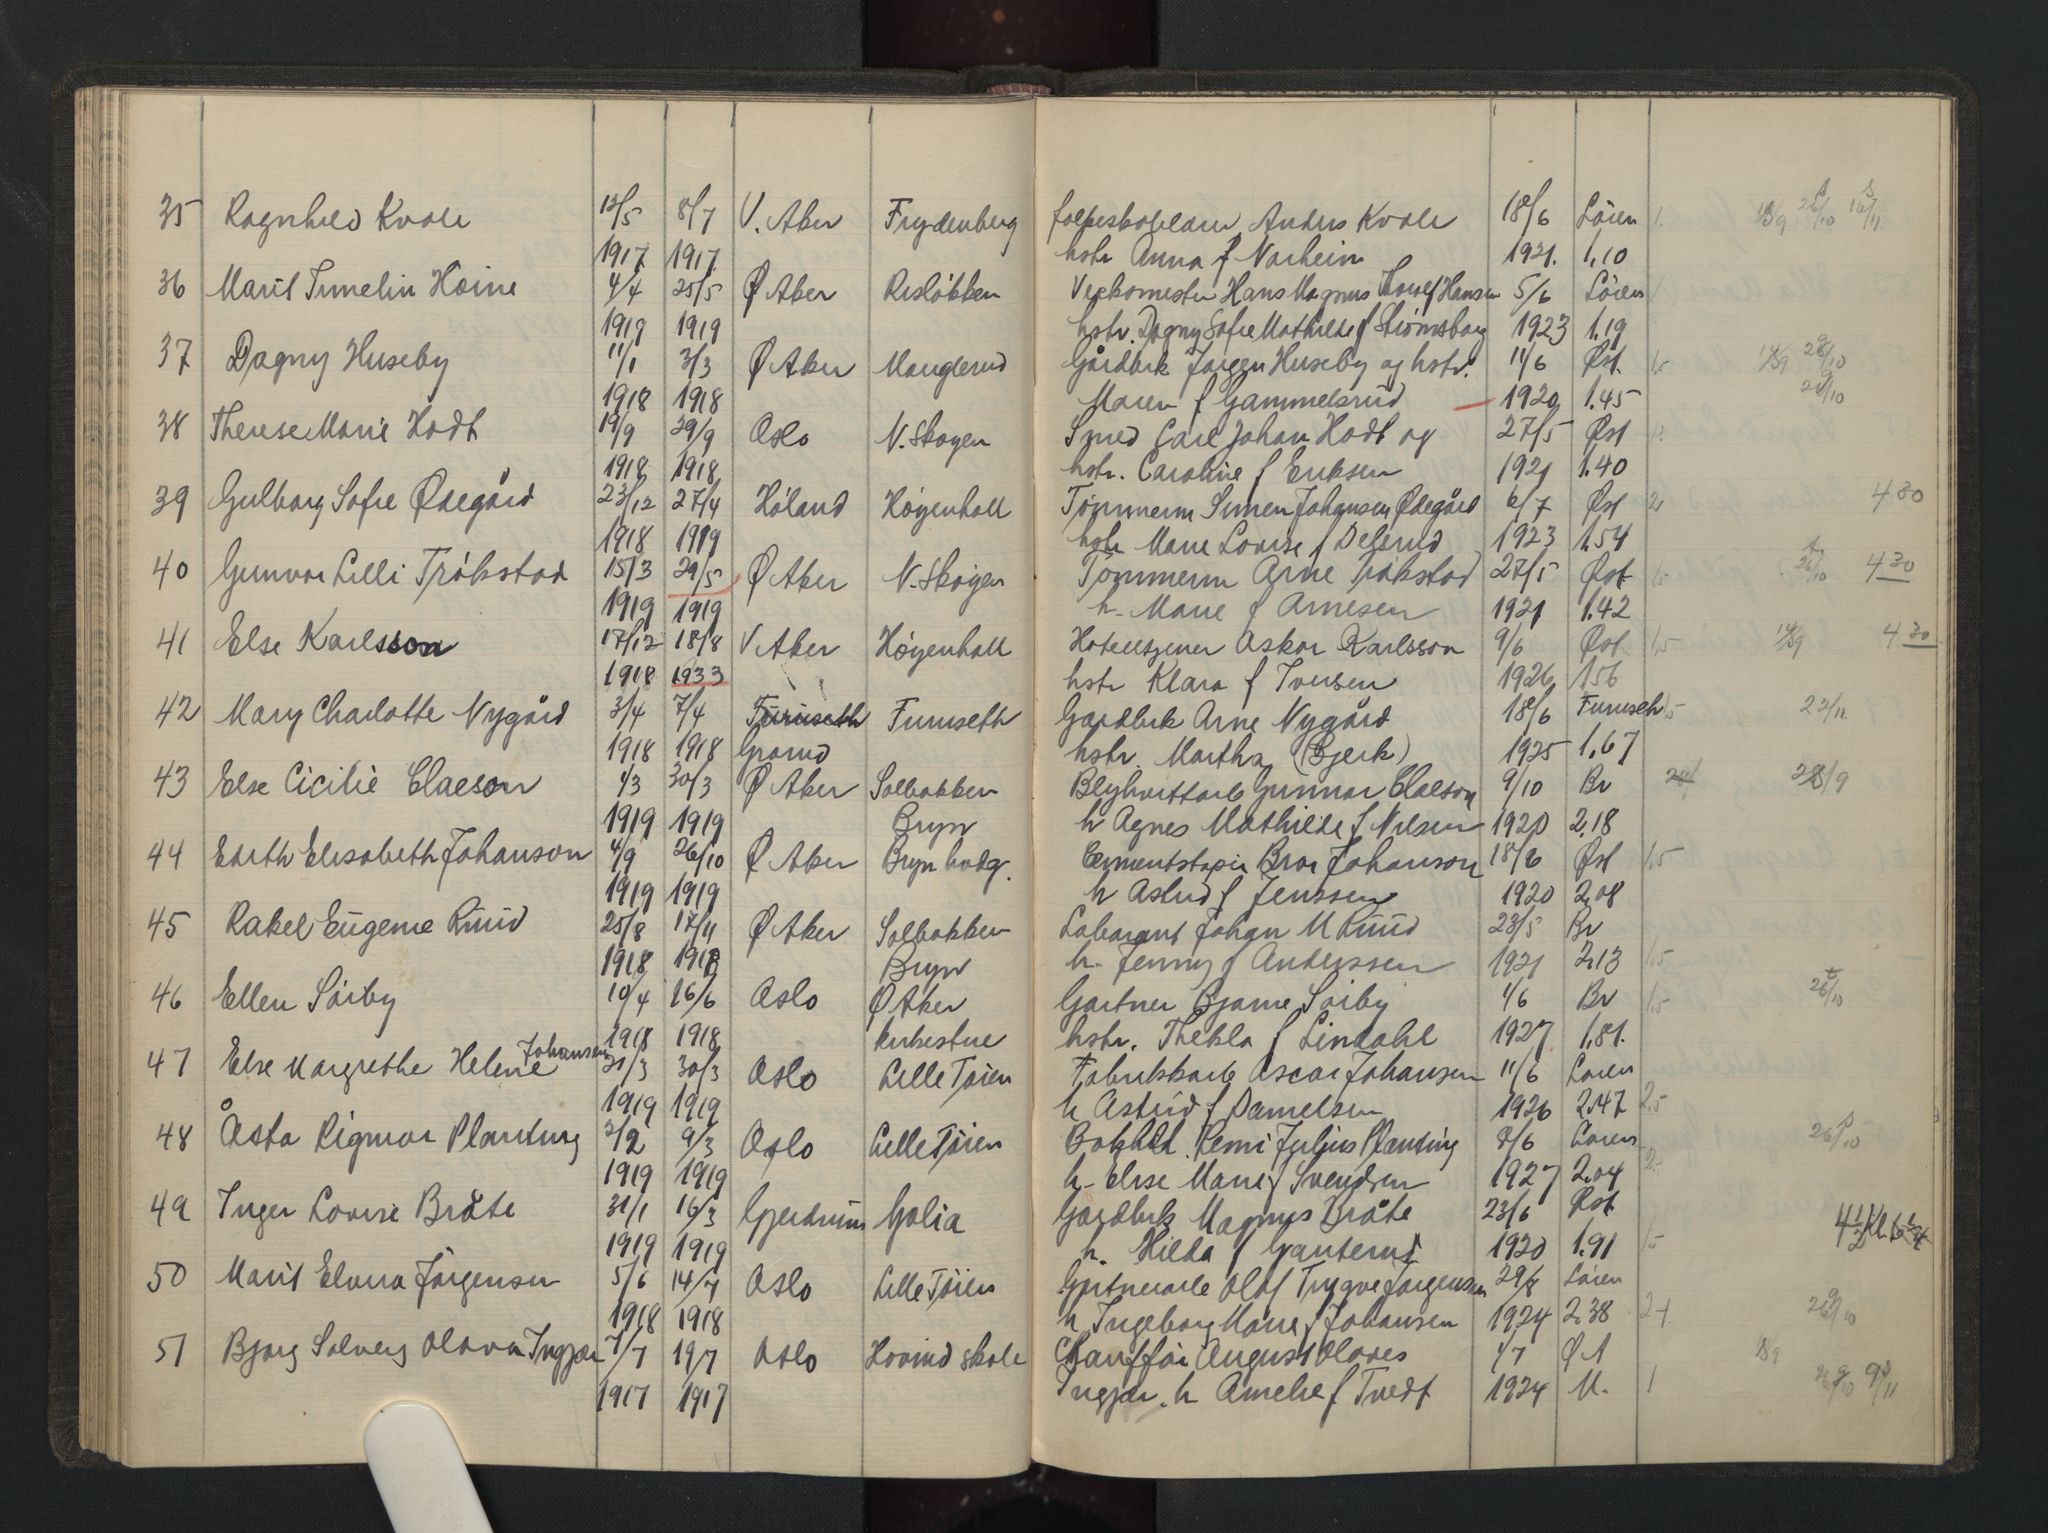 35 Ragnhild Kvale 12/5 8/7 V. Aker Frydenberg Anders Kvale 18/6 Løren 1.
1917 1917 hstr Anna f Norheim 1921. 1,10
36 Marit Høine 4/4 25/5 Ø Aker Risløkken Verkmester Hans Magnus Hansen 5/6 Løren
1919 1919 hstr. Dagny Sofie Mathilde f Strømsborg 1923 1.19
37 Dagny Huseby 11/1 3/3 Ø Aker Manglerud Gårdbrk Jørgen Huseby og hstr. 11/6 Øst. 1,5 14/9
1918 1918 Maren f Gammelsrud 1920 1.45
38 Therese Marie Hodt 19/9 29/9 Oslo N. Skøyen Smed Carl Johan Hodt og 27/5 Øst
1918 1918 hstr. Caroline f Eriksen 1921 1.40
39 Gulborg Sofie Ødegård 23/12 27/4 Høland Høyenhall Tømmerm Simen Johansen Ødegård 6/7 Øst 2 4 30
1918 1919 hstr Marie Lovise f Delerud 1923 1.54
40 Gunvor Lilli Trøkstad 15/3 29/5 Ø Aker N. Skøyen Tømmerm Arne Trøkstad 27/5 Øst 1,5 26/10 4 30
1919 1919 h. Marie f Arnesen 1921 1.42
41 Else Karlsson 17/12 18/8 V Aker Høyenhall Hotelltjener Oskar Karlsson 9/6 Øst 1,5 14/9 4 30
1918 1933 hstr Klara f Iversen 1926 1.56
42 Mary Charlotte Nygård 3/4 7/4 Furuseth Furuseth Gårdbrk Arne Nygård 18/6 Furuseth 1,5 22/11
1918 1918 Grorud hstr. Martha (Bjerk) 1925 1,67
43 Else Cicilie Claeson 1/3 30/3 Ø Aker Solbakken Blyhvittarb Gunnar Claeson 9/10 Br 28/9
1919 1919 Bryn h Agnes Mathilde f Nilsen 1920 2.18
44 Edith Elisabeth Johanson 4/9 26/10 Ø Aker Bryn hvdg. Cementstøper Bror Johanson 18/6 Øst 1,5
1919 1919 h Astrid f Jenssen 1920 2.08
45 Rakel Eugenie Ruud 25/8 17/11 Ø Aker Solbakken Laborant Johan M Ruud 23/5 Br
1918 1918 Bryn h. Jenny f Anderssen 1921 2,13 1,5
46 Ellen Sørby 10/4 16/6 Oslo Ø Aker Gartner Bjarne Sørby 1/6 Br 1,5 26/10
1918 1918 kirkestue hstr. Thekla f Lindahl 1927 1,81.
47 Else Margrethe Helene Johansen 21/3 30/3 Oslo Lille Tøien Fabrikkarb Oscar Johansen 11/6 Løren
1919 1919 h Astrid f Danielsen 1926 2.47 2,5
48 Åsta Rigmor Planting 2/2 9/3 Oslo Lille Tøien Remi Julius Planting 8/6 Løren 26/10
1919 1919 h. Elise Marie f Svendsen 1927 2.04
49 Inger Lovise Bråte 31/1 16/3 Gjerdrum Golia Gårdbrk Magnus Bråte 23/6 Øst
1919 1919 h. Hilda f Ganterud 1920 1.91 1,5
50 Marit Elvira Jørgensen 5/6 14/7 Oslo Lille Tøien Gartnerarb Olaf Trygve Jørgensen 29/8 Løren
1918 1918 h Ingeborg Marie f Johansen 1924 2.38 26/10
51 Bjørg Solveig Olava Ingjær 7/7 19/7 Oslo Hovind skole Chauffør August Olaves 4/7 Ø A 18/9
1917 1917 Ingjær. h Amelie f Tvedt 1924 M. 1